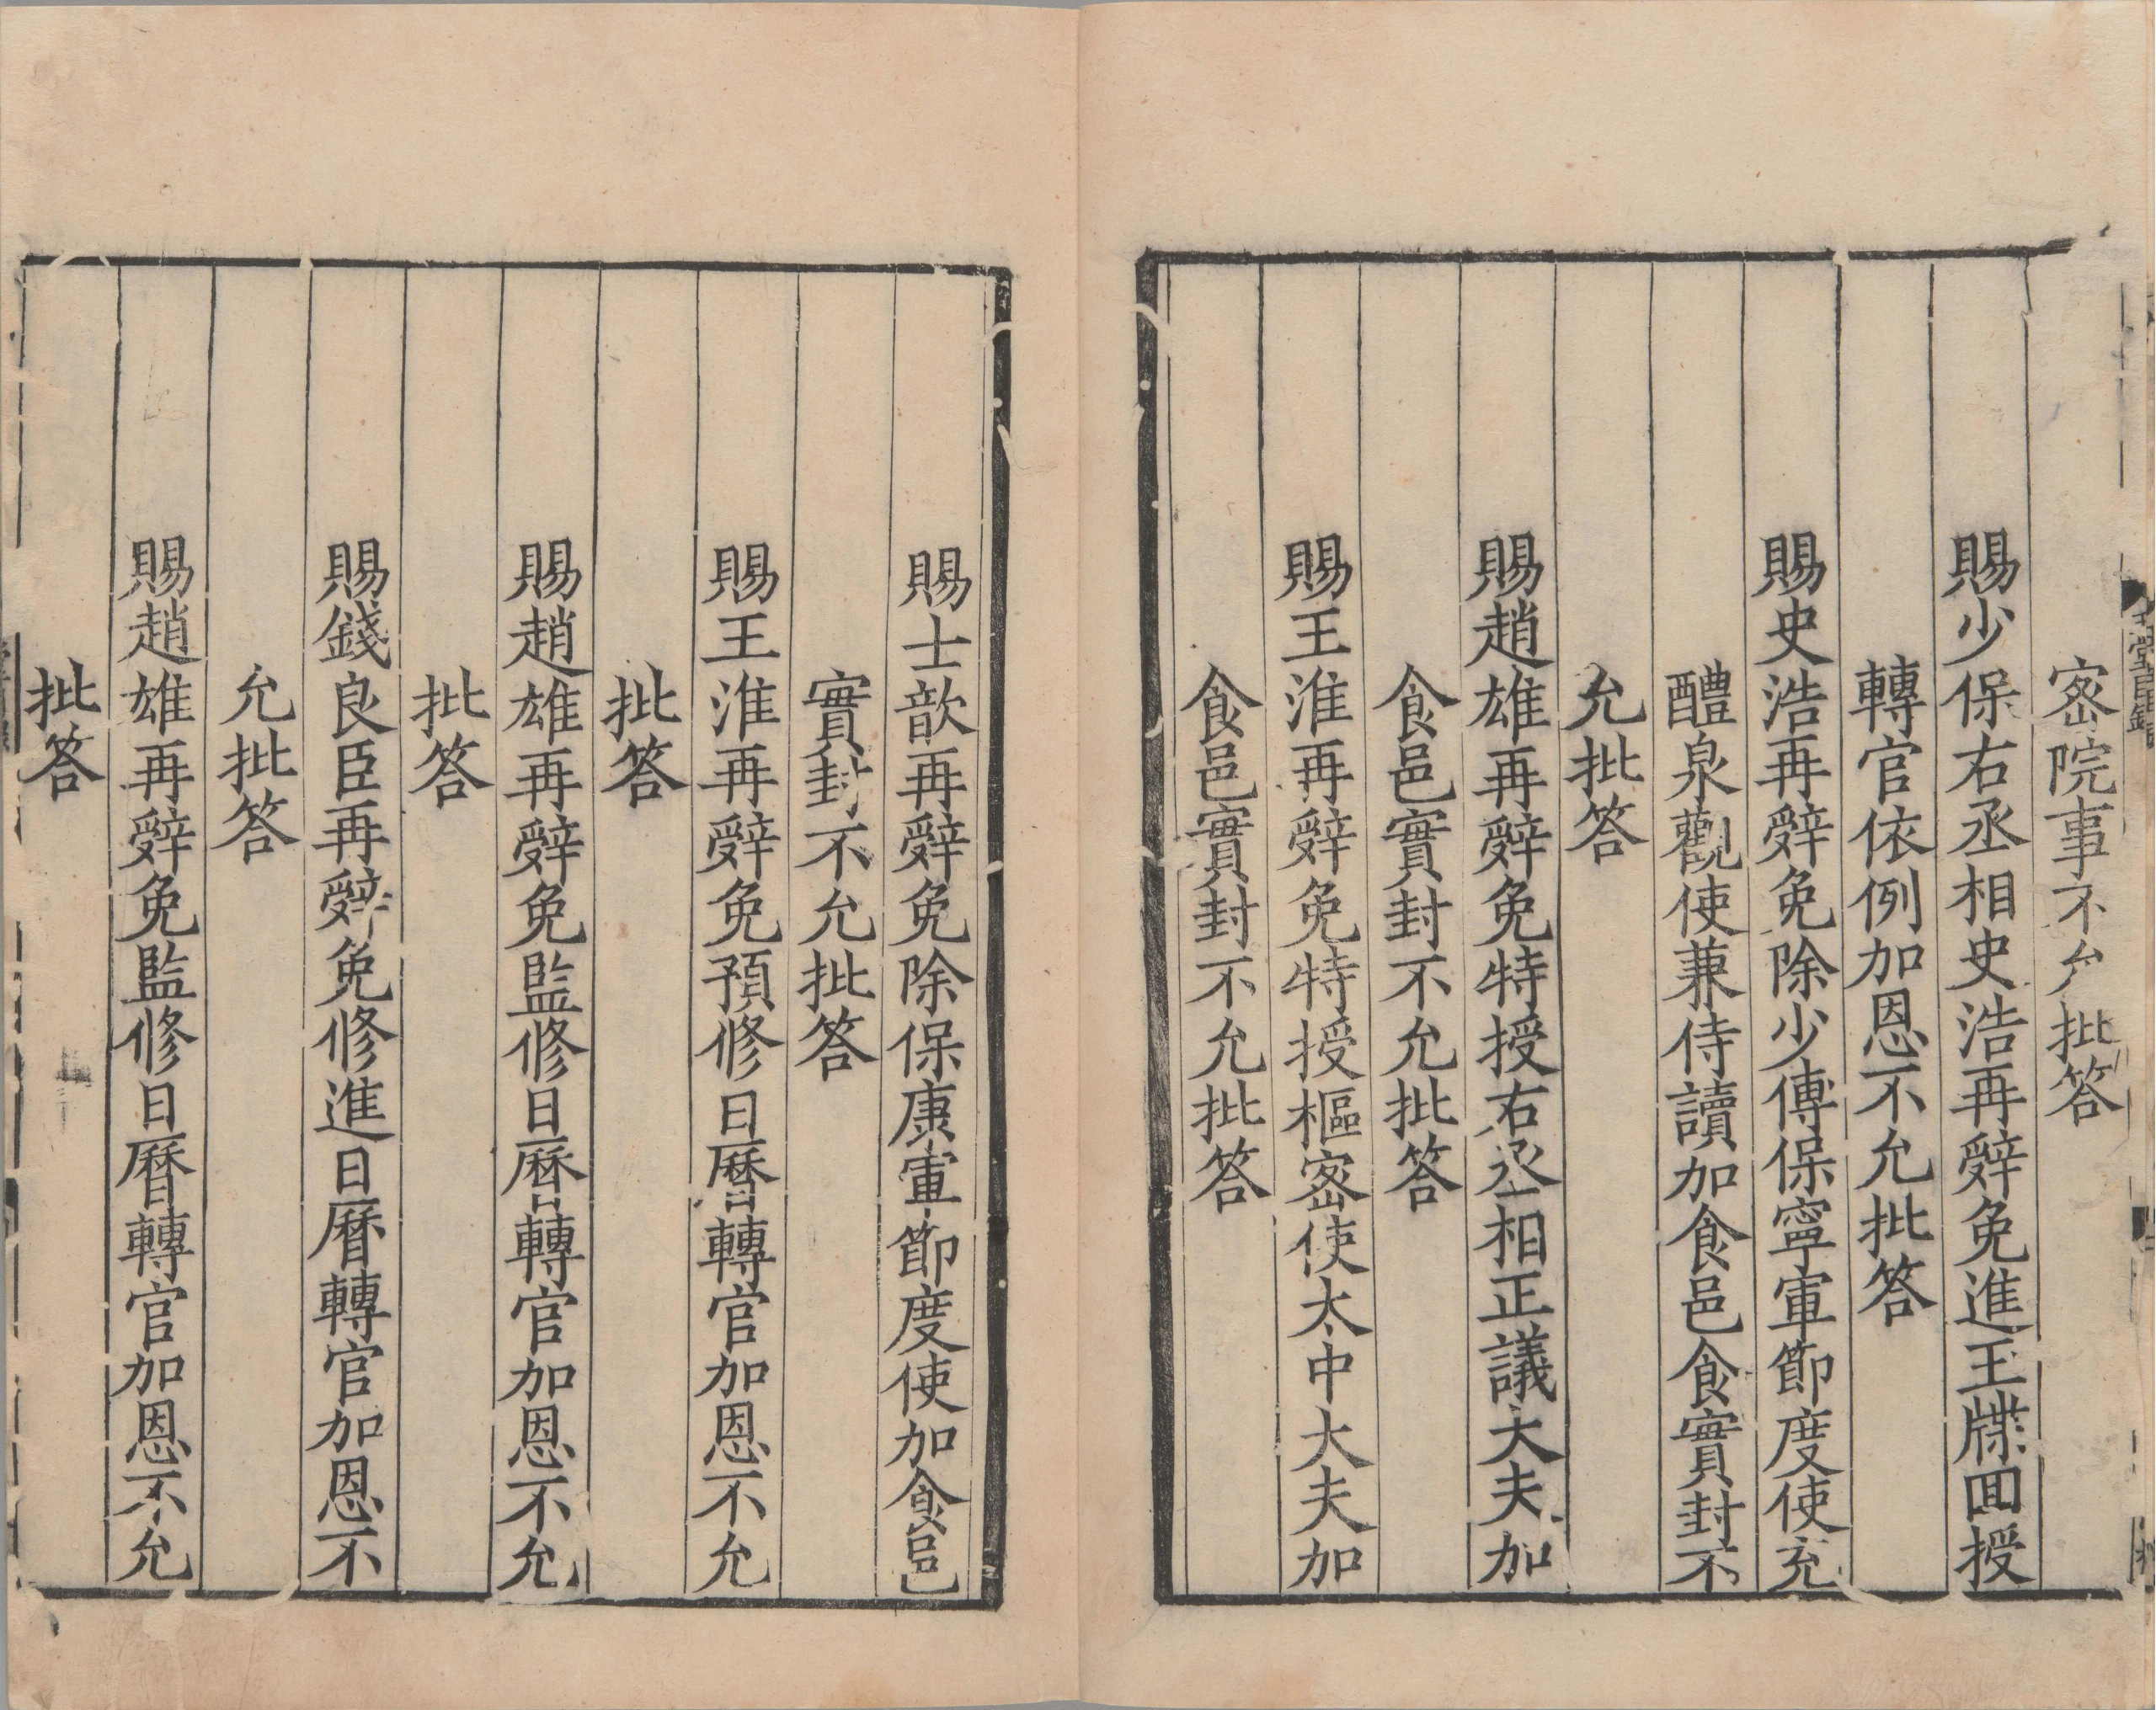 密院事不允批答
賜少保右丞相史浩再辭免進玉牒回授
轉官依例加恩不允批答
賜史浩再辭免除少傅保寧軍節度使充
醴泉觀使兼侍讀加食邑食實封不
允批答
賜趙雄再辭免特授右丞相正議大夫加
食邑實封不允批答
賜王淮再辭免特授樞密使太中大夫加
食邑實封不允批答
賜士歆再辭免除保康軍節度使加食邑
實封不允批答
賜王淮再辭免預修日曆轉官加恩不允
批答
賜趙雄再辭免監修日曆轉官加恩不允
批答
賜錢良臣再辭免修進日曆轉官加恩不
允批答
賜趙雄再辭免監修日曆轉官加恩不允
批答